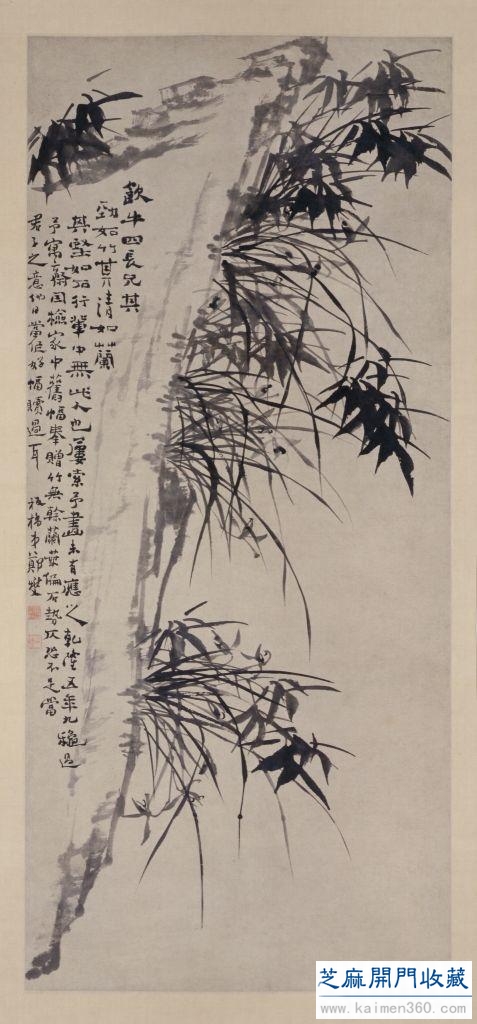 歗牛四長兄其
勁如竹其清如蘭
其堅如石行輩中無此人也屢索予畫未有應之乾隆五年九龝過
予寓齋因檢家中舊幅奉贈竹無餘蘭葉偏石勢仄恐不足當
君子之意他日當作好幅贖過耳 板橋弟鄭燮
芝麻開門收藏
www.kaimen360.com